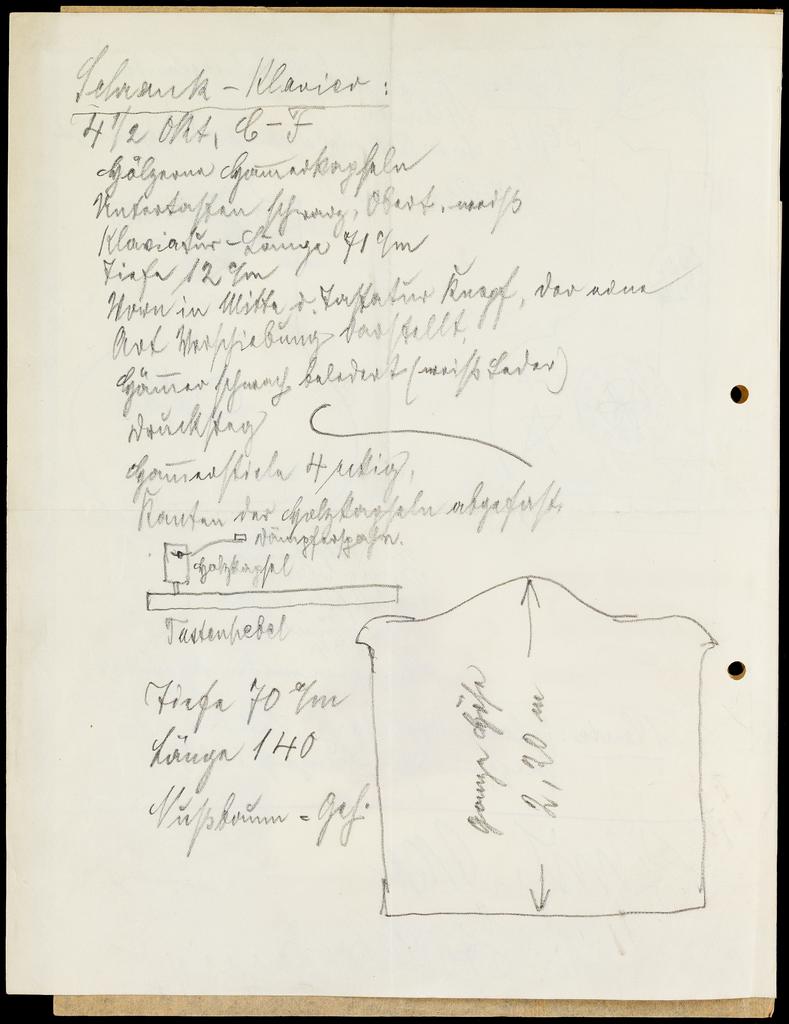 Schrank-Klavier:
4 1/2 Okt, C-F
Hölzerne Ham̅erkapseln
Untertasten schwarz, Obert. weiß
Klaviatur-Länge 71 c/m
Tiefe 12 c/m
Vorn in Mitte d. Tastatur Knopf, der eine
Art Verschiebung darstellt.
Häm̅er schwach beledert (weiß Leder)
Drucksteg
Ham̅erstiele 4 eckig,
Kanten der Holzkapseln abgefast.
Dämpferspahn.
Holzkapsel
Tastenhebel
Tiefe 70 c/m
Länge 140
Nußbaum = Geh.
ganze Höhe
2,20 m